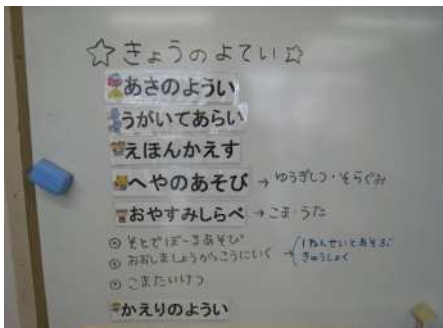 ☆きょうのよてい☆
あさのようい
うがいてあらい
えほんかえす
へやのあそび → ゆうぎしつ・そらぐみ
おやすみしらべ → こま・うた
◎ そとでぼーるあそび
◎ おおしましょうがっこうにいく → 1ねんせいとあそぶ
きゅうしょく
◎ こまたいけつ
かえりのようい